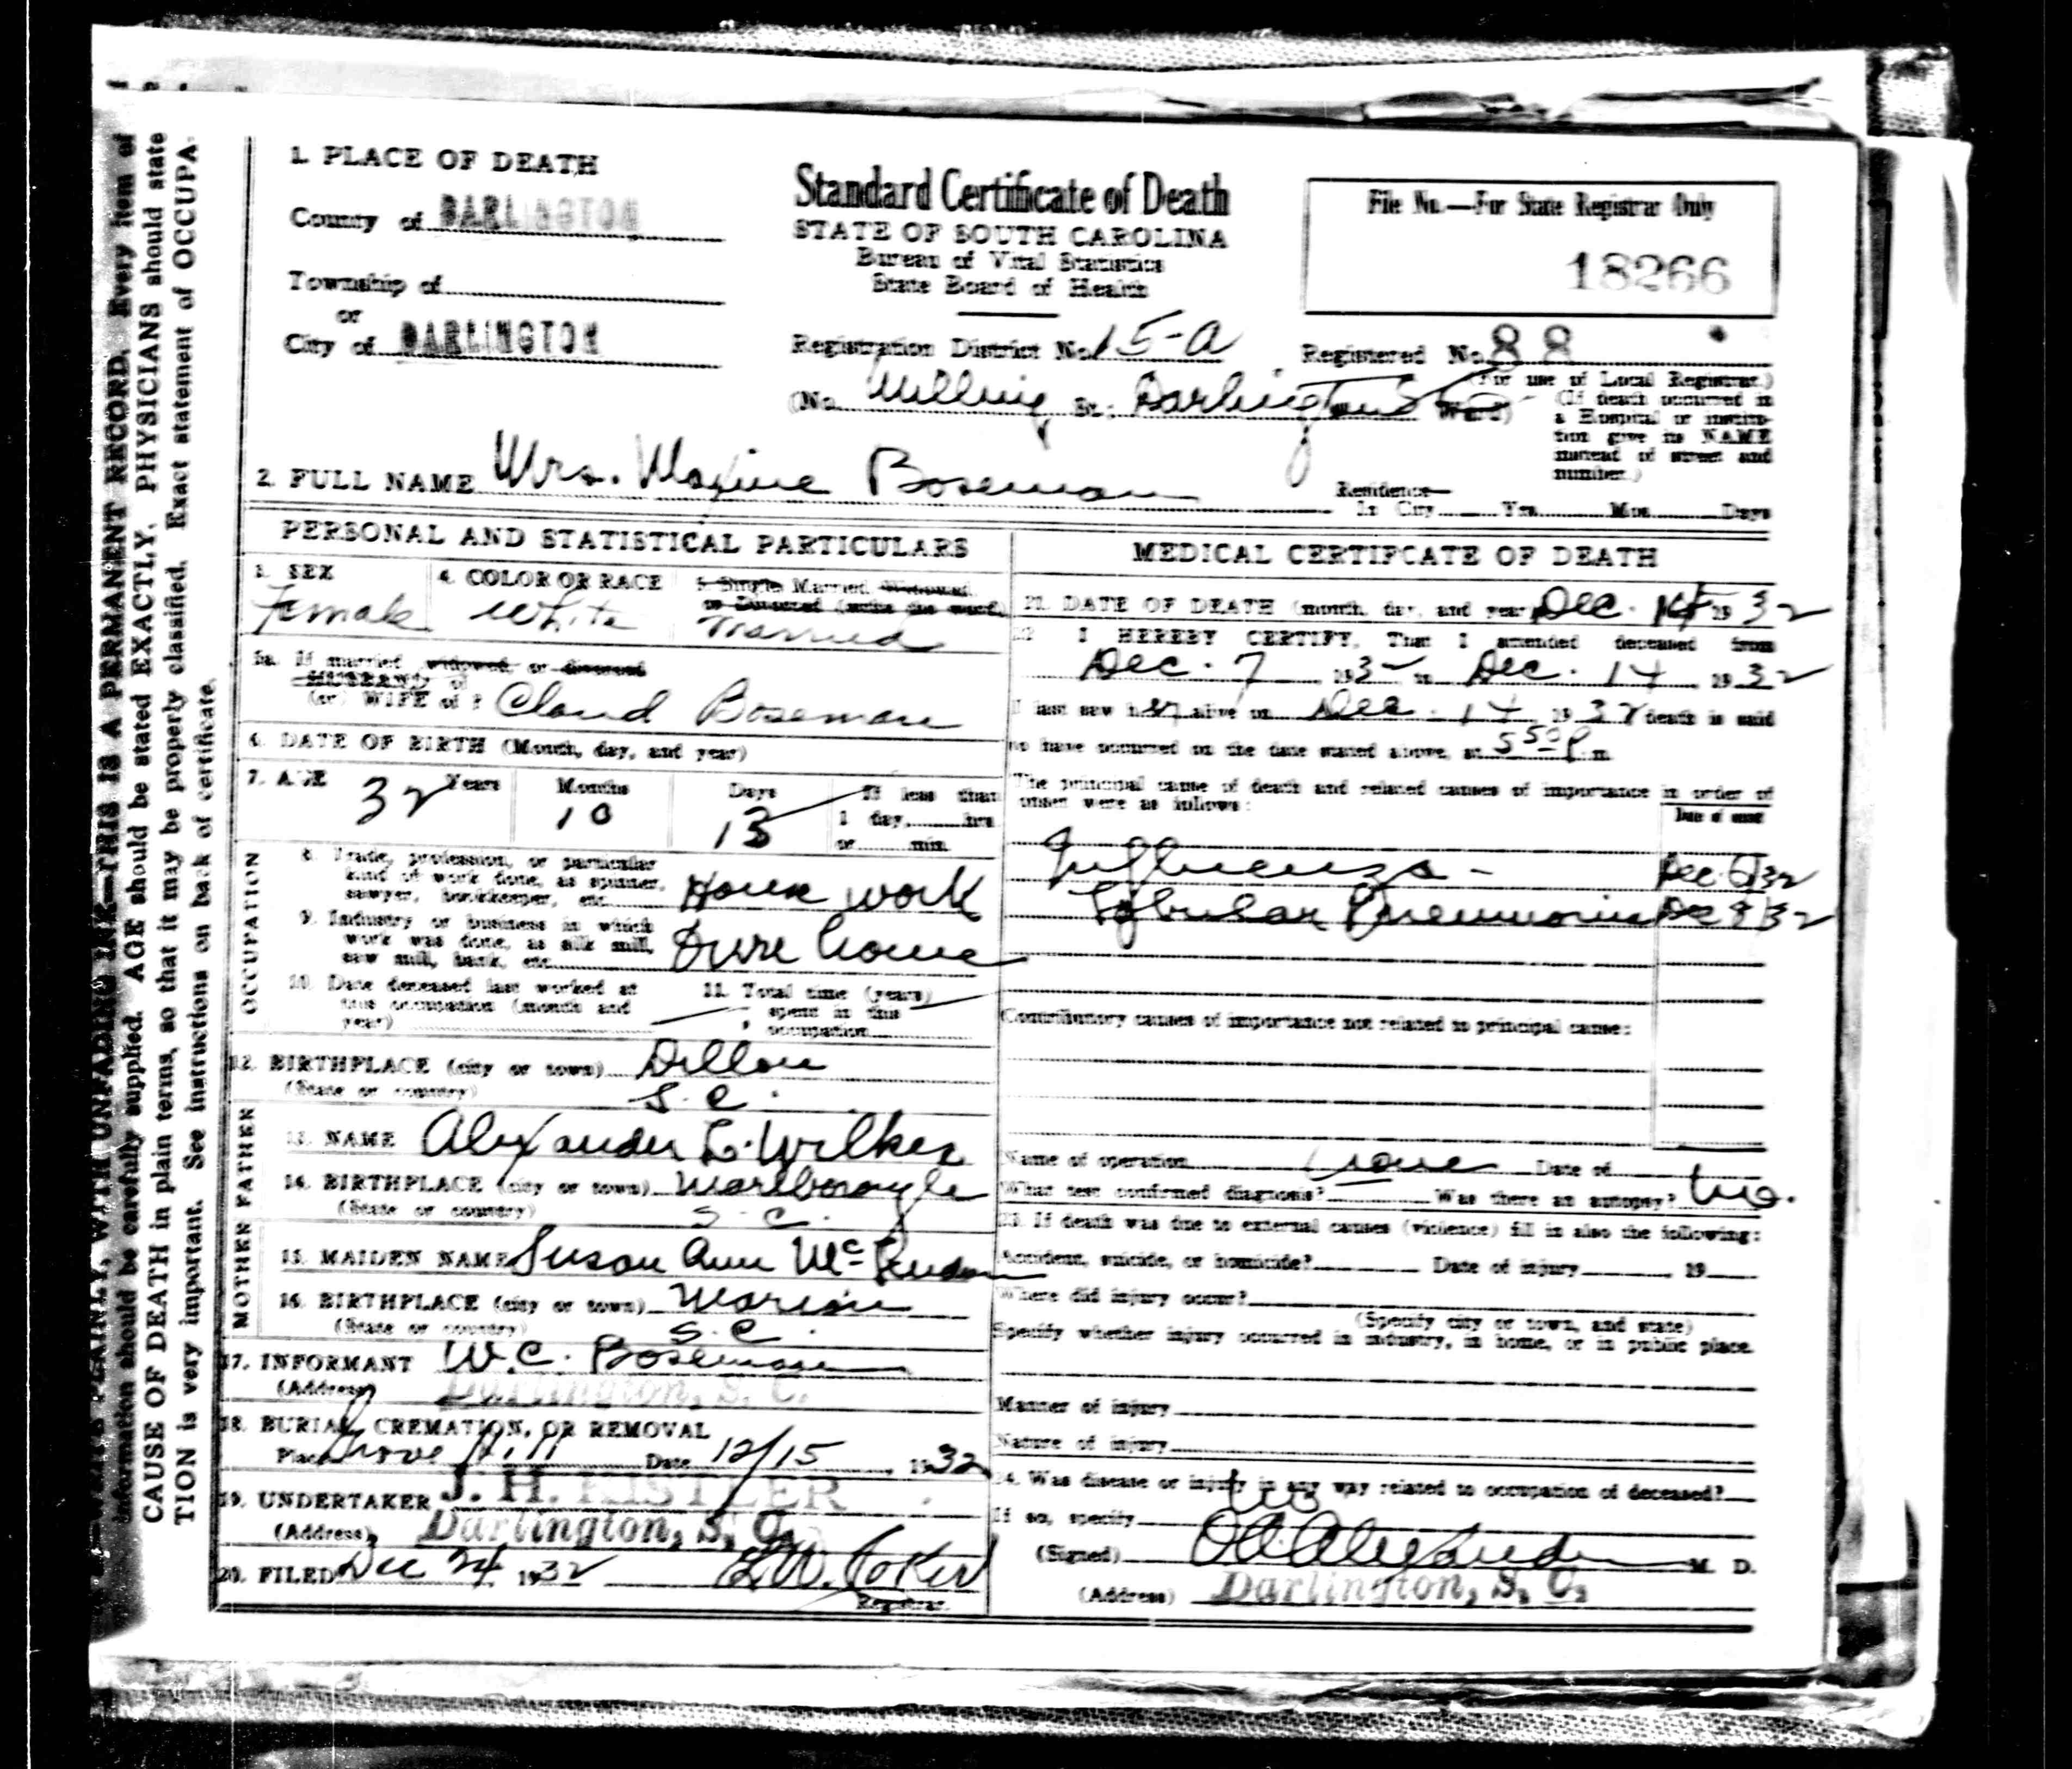 WRITE PLAINLY, WITH UNFADING INK—THIS IS A PERMANENT RECORD. Every item of
information should be carefully supplied. AGE should be stated EXACTLY. PHYSICIANS should state
CAUSE OF DEATH in plain terms, so that it may be properly classified. Exact statement of OCCUPA-
TION is very important. See instructions on back of certificate.
1. PLACE OF DEATH
County of DARLINGTON
Township of
or
City of DARLINGTON
Standard Certificate of Death
STATE OF SOUTH CAROLINA
Bureau of Vital Statistics
State Board of Health
File No.—For State Registrar Only
18266
Registration District No. 15-a
Registered No. 88
(For use of Local Registrar.)
(No. St.; Darlington Ward)
(If death occurred in
a Hospital or institu-
tion give its NAME
instead of street and
number.)
2. FULL NAME Mrs. Maxine Boseman
Residence
In City Yrs. Mos. Days
PERSONAL AND STATISTICAL PARTICULARS
3. SEX
Female
4. COLOR OR RACE
White
5 Single Married Widowed
or Divorced (write the word)
Married
5a. If married widowed or divorced
HUSBAND of
(or) WIFE of Claud Boseman
6. DATE OF BIRTH (Month, day, and year)
7. AGE 32 Years 10 Months 13 Days
If less than
1 day hrs
or min.
OCCUPATION
8. Trade, profession, or particular
kind of work done, as spinner,
sawyer, bookkeeper, etc. House work
9. Industry or business in which
work was done, as silk mill,
saw mill, bank, etc. Own home
10. Date deceased last worked at
this occupation (month and
year)
11. Total time (years)
spent in this
occupation
12. BIRTHPLACE (city or town) Dillon
(State or country) S. C.
FATHER
13. NAME Alexander L. Wilkes
14. BIRTHPLACE (city or town) Marlborough
(State or country) S. C.
MOTHER
15. MAIDEN NAME Susan Ann
16. BIRTHPLACE (city or town) Marion
(State or country) S. C.
17. INFORMANT W. C. Boseman
(Address) Darlington, S. C.
18. BURIAL, CREMATION, OR REMOVAL
Place Grove Hill Date 12/15, 1932
19. UNDERTAKER J. H. KISTLER
(Address) Darlington, S. C.
20. FILED Dec 24 1932 Coker
Registrar.
MEDICAL CERTIFCATE OF DEATH
21. DATE OF DEATH (month, day, and year) Dec. 14 1932
22 I HEREBY CERTIFY, That I attended deceased from
Dec. 7, 1932 to Dec. 14, 1932
I last saw her alive on Dec. 14, 1932 death is said
to have occurred on the date stated above, at 5 50 P. m.
The principal cause of death and related causes of importance in order of
onset were as follows:
Date of onset
Influenza - Dec 6/32
Lobular Pneumonia Dec 9/32
Contributory causes of importance not related to principal cause:
Name of operation None Date of
What test confirmed diagnosis? Was there an autopsy? No.
23. If death was due to external causes (violence) fill in also the following:
Accident, suicide, or homicide? Date of injury , 19
Where did injury occur?
(Specify city or town, and state)
Specify whether injury occurred in industry, in home, or in public place.
Manner of injury
Nature of injury
24. Was disease or injury in any way related to occupation of deceased?
If so, specify No
(Signed) M. D.
(Address) Darlington, S. C.